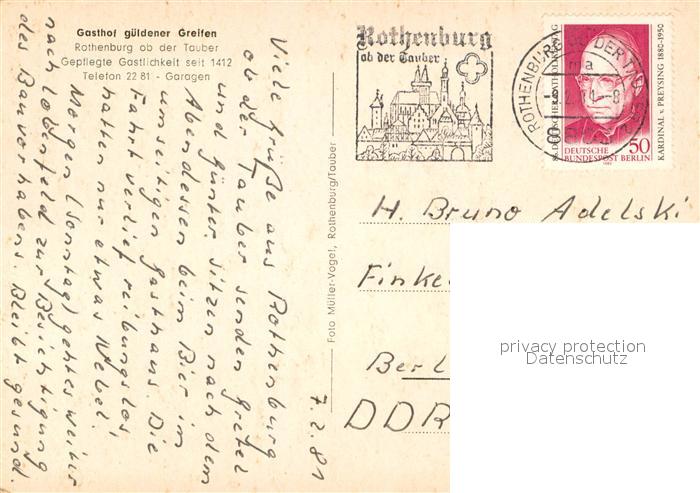 Gasthof güldener Greifen
Rothenburg ob der Tauber
Gepflegte Gastlichkeit seit 1412
Telefon 22 81 - Garagen
Rothenburg
ob der Tauber
ROTHENBURG OB DER TAUBER
DEUTSCHER KATHOLIKENTAG
KARDINAL v. PREYSING 1880-1950
50
DEUTSCHE
BUNDESPOST BERLIN
Viele Grüße aus Rothenburg
ob der Tauber senden Gretel
und Günter. Sitzen nach dem
Abendessen beim Bier im
umseitigen Gasthaus. Die
Fahrt verlief reibungslos
hatten nur etwas Nebel!
Morgen (Sonntag) geht es weiter
nach Lobenfeld zur Besichtigung
des Bauvorhabens. Bleibt gesund.
7.2.81
Foto Müller-Vogel, Rothenburg/Tauber
H. Bruno Adelski
Finke
Berl
DDR
privacy protection
Datenschutz